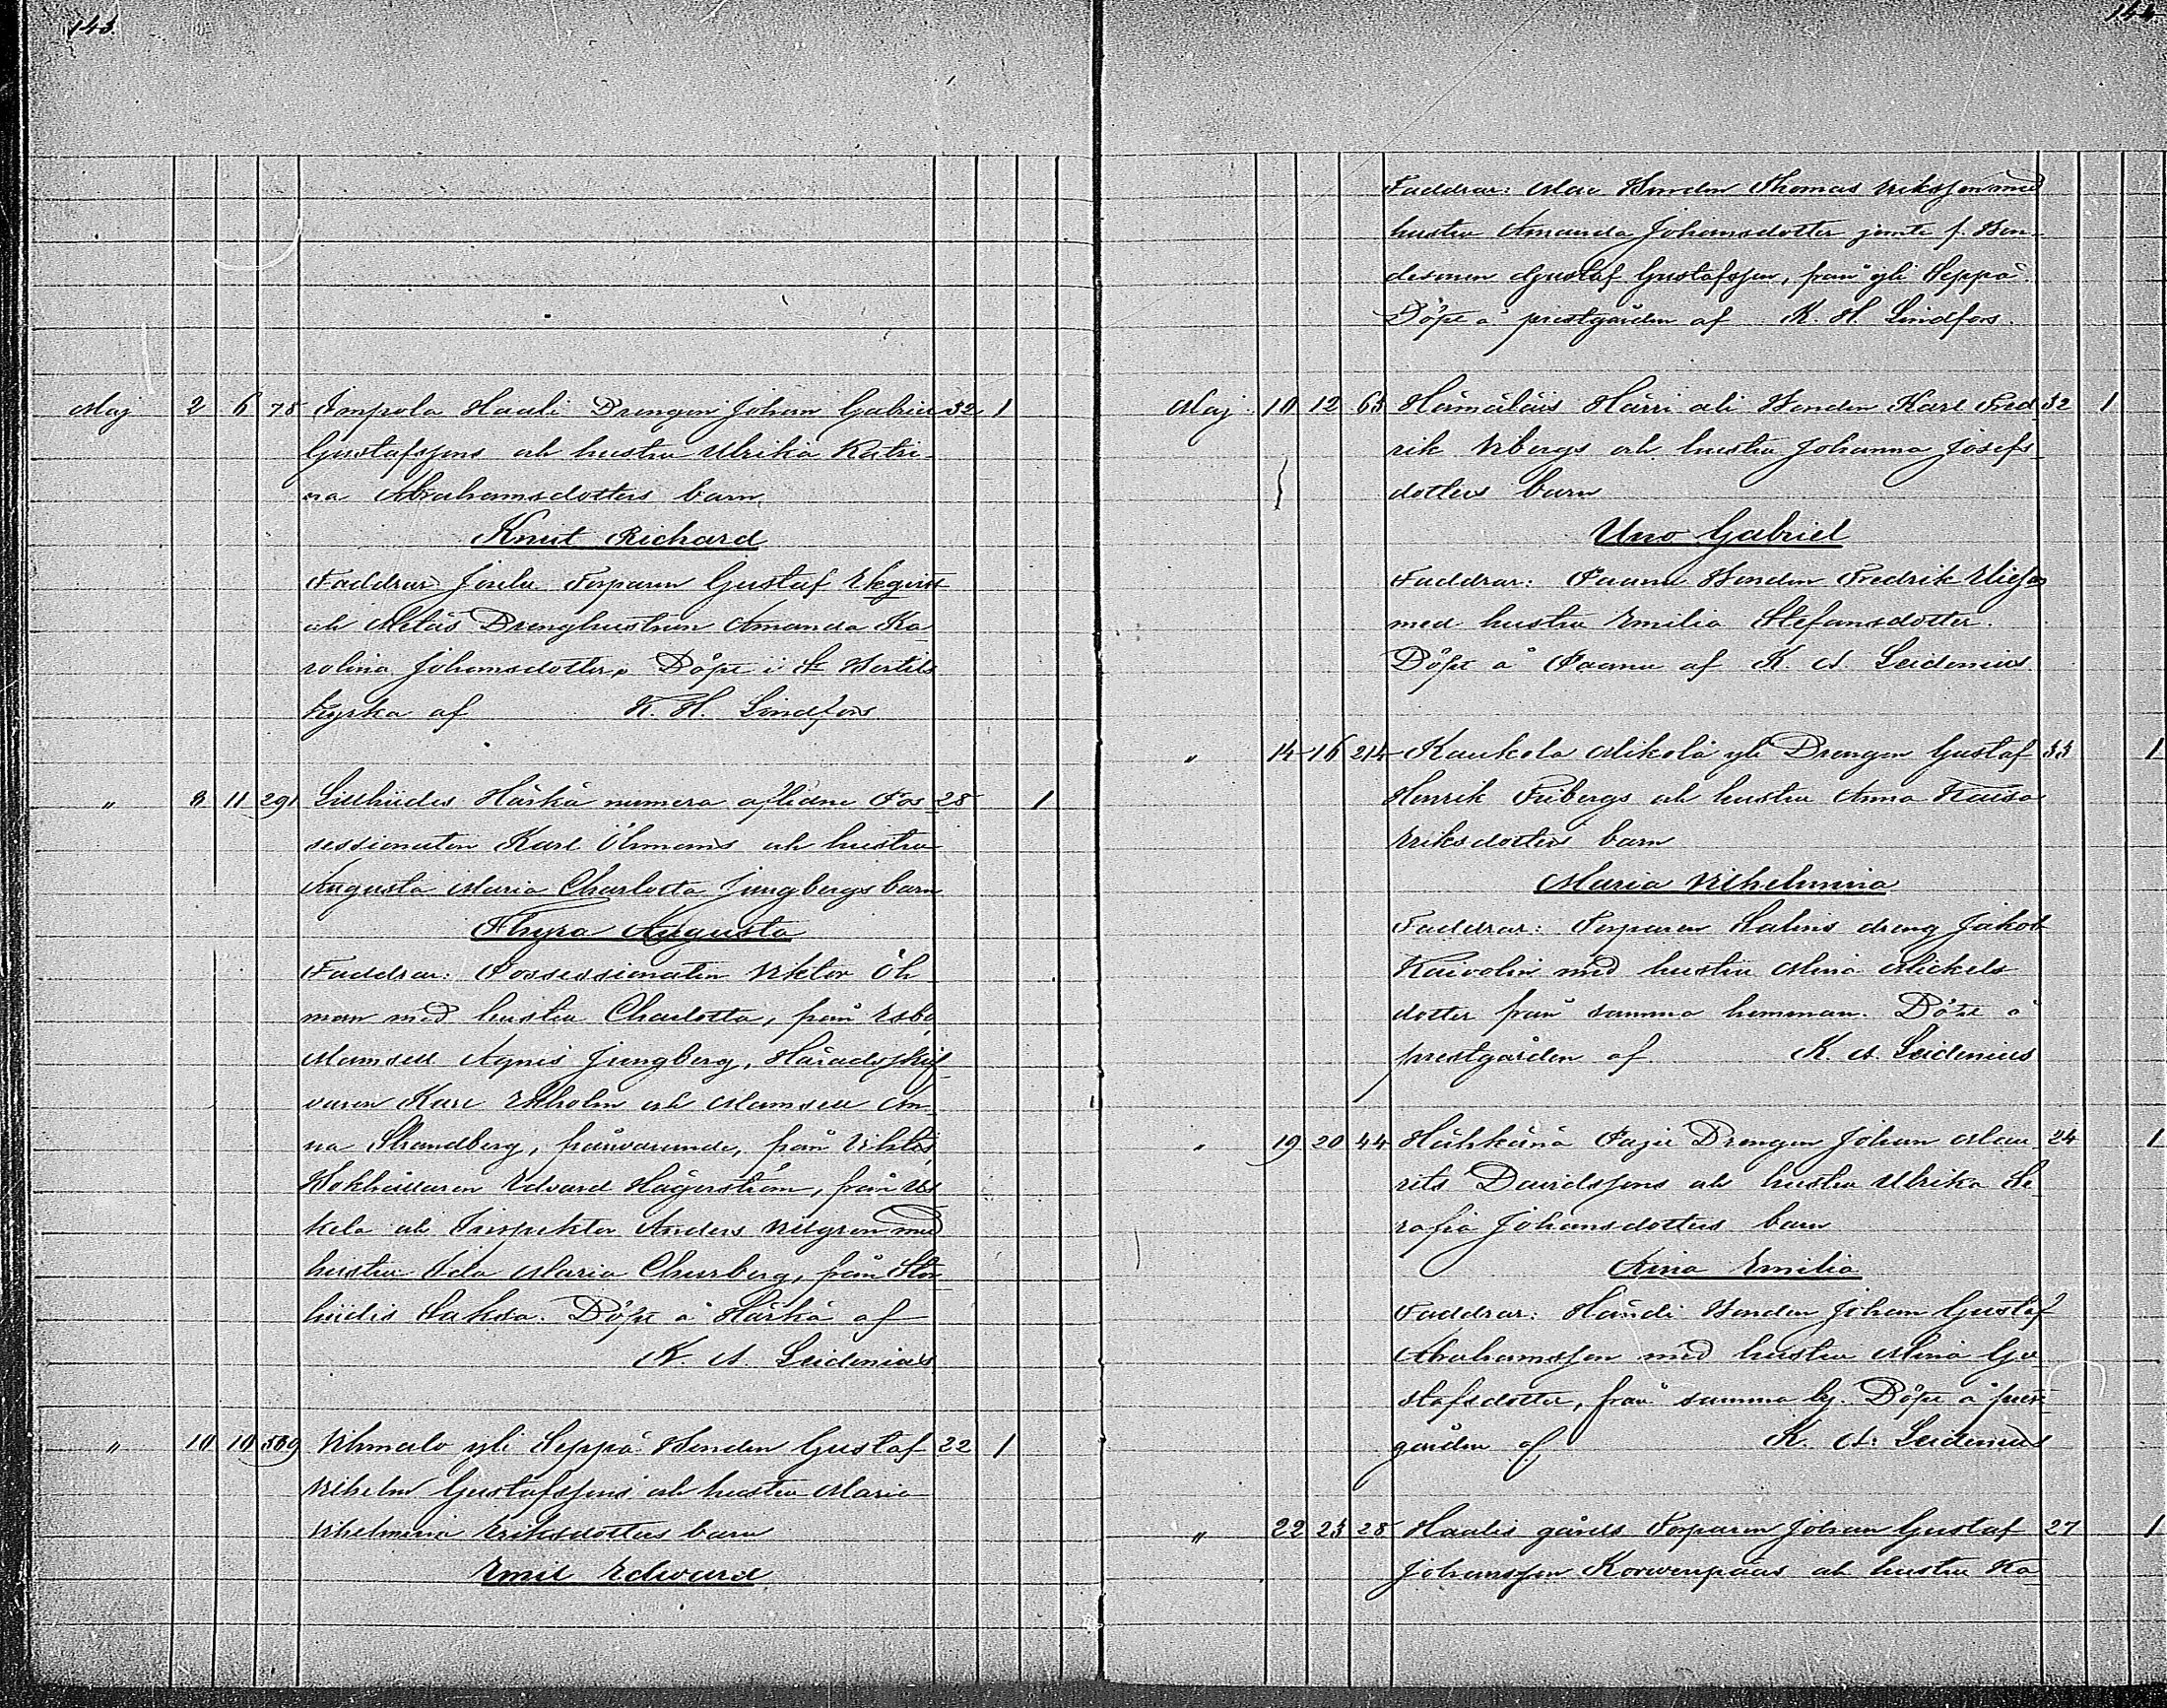 143.
Maj 2 6 78 Impola Haali Drengen Johan Gabriel 32 1
Gustafssons och hustru Ulrika Katri-
na Abrahamsdotters barn
Knut Richard
Faddrar Torparen Gustaf Ekqvist
och Drenghustrun Amanda Ka
rolina Johansdotter. Döpt i St Bertils
kyrka af K. H. Lindfors
" 3 11 291 Lillhiides Härkä numera aflidne Pos 28 1
sessionaten Karl Öhmans och hustru
Augusta Maria Charlotta Jungbergs barn
Thyra Augusta
Faddrar: Possessionaten Viktor Öh
man med hustru Charlotta, från Esbo
Mamsell Agnes Jungberg, Häradsskrif
varen Karl Ekholm och Mamsell An-
na Strandberg, frånvarande, från Vihtis,
Bokhållaren Edvard Hägerström, från
kela och Inspektor Anders med
hustru Ida Maria från Stor
hiidis Saksa. Döpt å Härkä af
K. A. Leidenius
" 10 10 569 Vihmalo yli Seppä Bonden Gustaf 22 1
Vilhelm Gustafssons och hustru Maria
Vilhelmina Eriksdotters barn
Emil Edvard
144
Faddrar: Bonden Thomas Eriksson med
hustru Amanda Johansdotter jemte f. Bon-
desonen Gustaf Gustafsson, från yli Seppä.
Döpt å prestgården af K. H. Lindfors.
Maj 10 12 63 Hämäläis Härri ali Bonden Karl Fred 32 1
rik Vibergs och hustru Johanna Josefs-
dotters barn
Uno Gabriel
Faddrar: Paanu Bonden Fredrik
med hustru Emilia Stefansdotter.
Döpt å Paanu af K. A. Leidenius.
" 14 16 214 Kaukola Mikola yli Drengen Gustaf 33 1
Henrik Fribergs och hustru Anna Kaisa
Eriksdotters barn
Maria Vilhelmina
Faddrar: Torparen Salins dreng Jakob
Kaivolin med hustru Mina Mickels
dotter från samma hemman. Döpt å
prestgården af K. A. Leidenius
" 19 20 44 Häihkänä Paju Drengen Johan Mau 24 1
rits Davidssons och hustru Ulrika Se
rafia Johansdotters barn
Aina Emilia
Faddrar: Händi Bonden Johan Gustaf
Abrahamsson med hustru Mina Gu
stafsdotter, från samma by. Döpt å prest
gården af K. A. Leidenius
" 22 23 28 Haalis gårds Torparen Johan Gustaf 27 1
Johansson Korvenpääs och hustru Ka